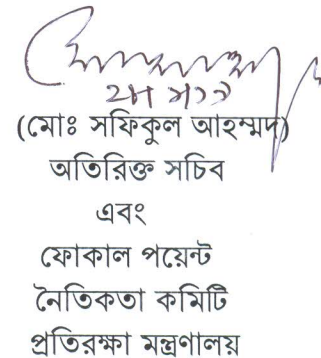 (মোঃ সফিকুল আহম্মদ)
অতিরিক্ত সচিব
এবং
ফোকাল পয়েন্ট
নৈতিকতা কমিটি
প্রতিরক্ষা মন্ত্রণালয়